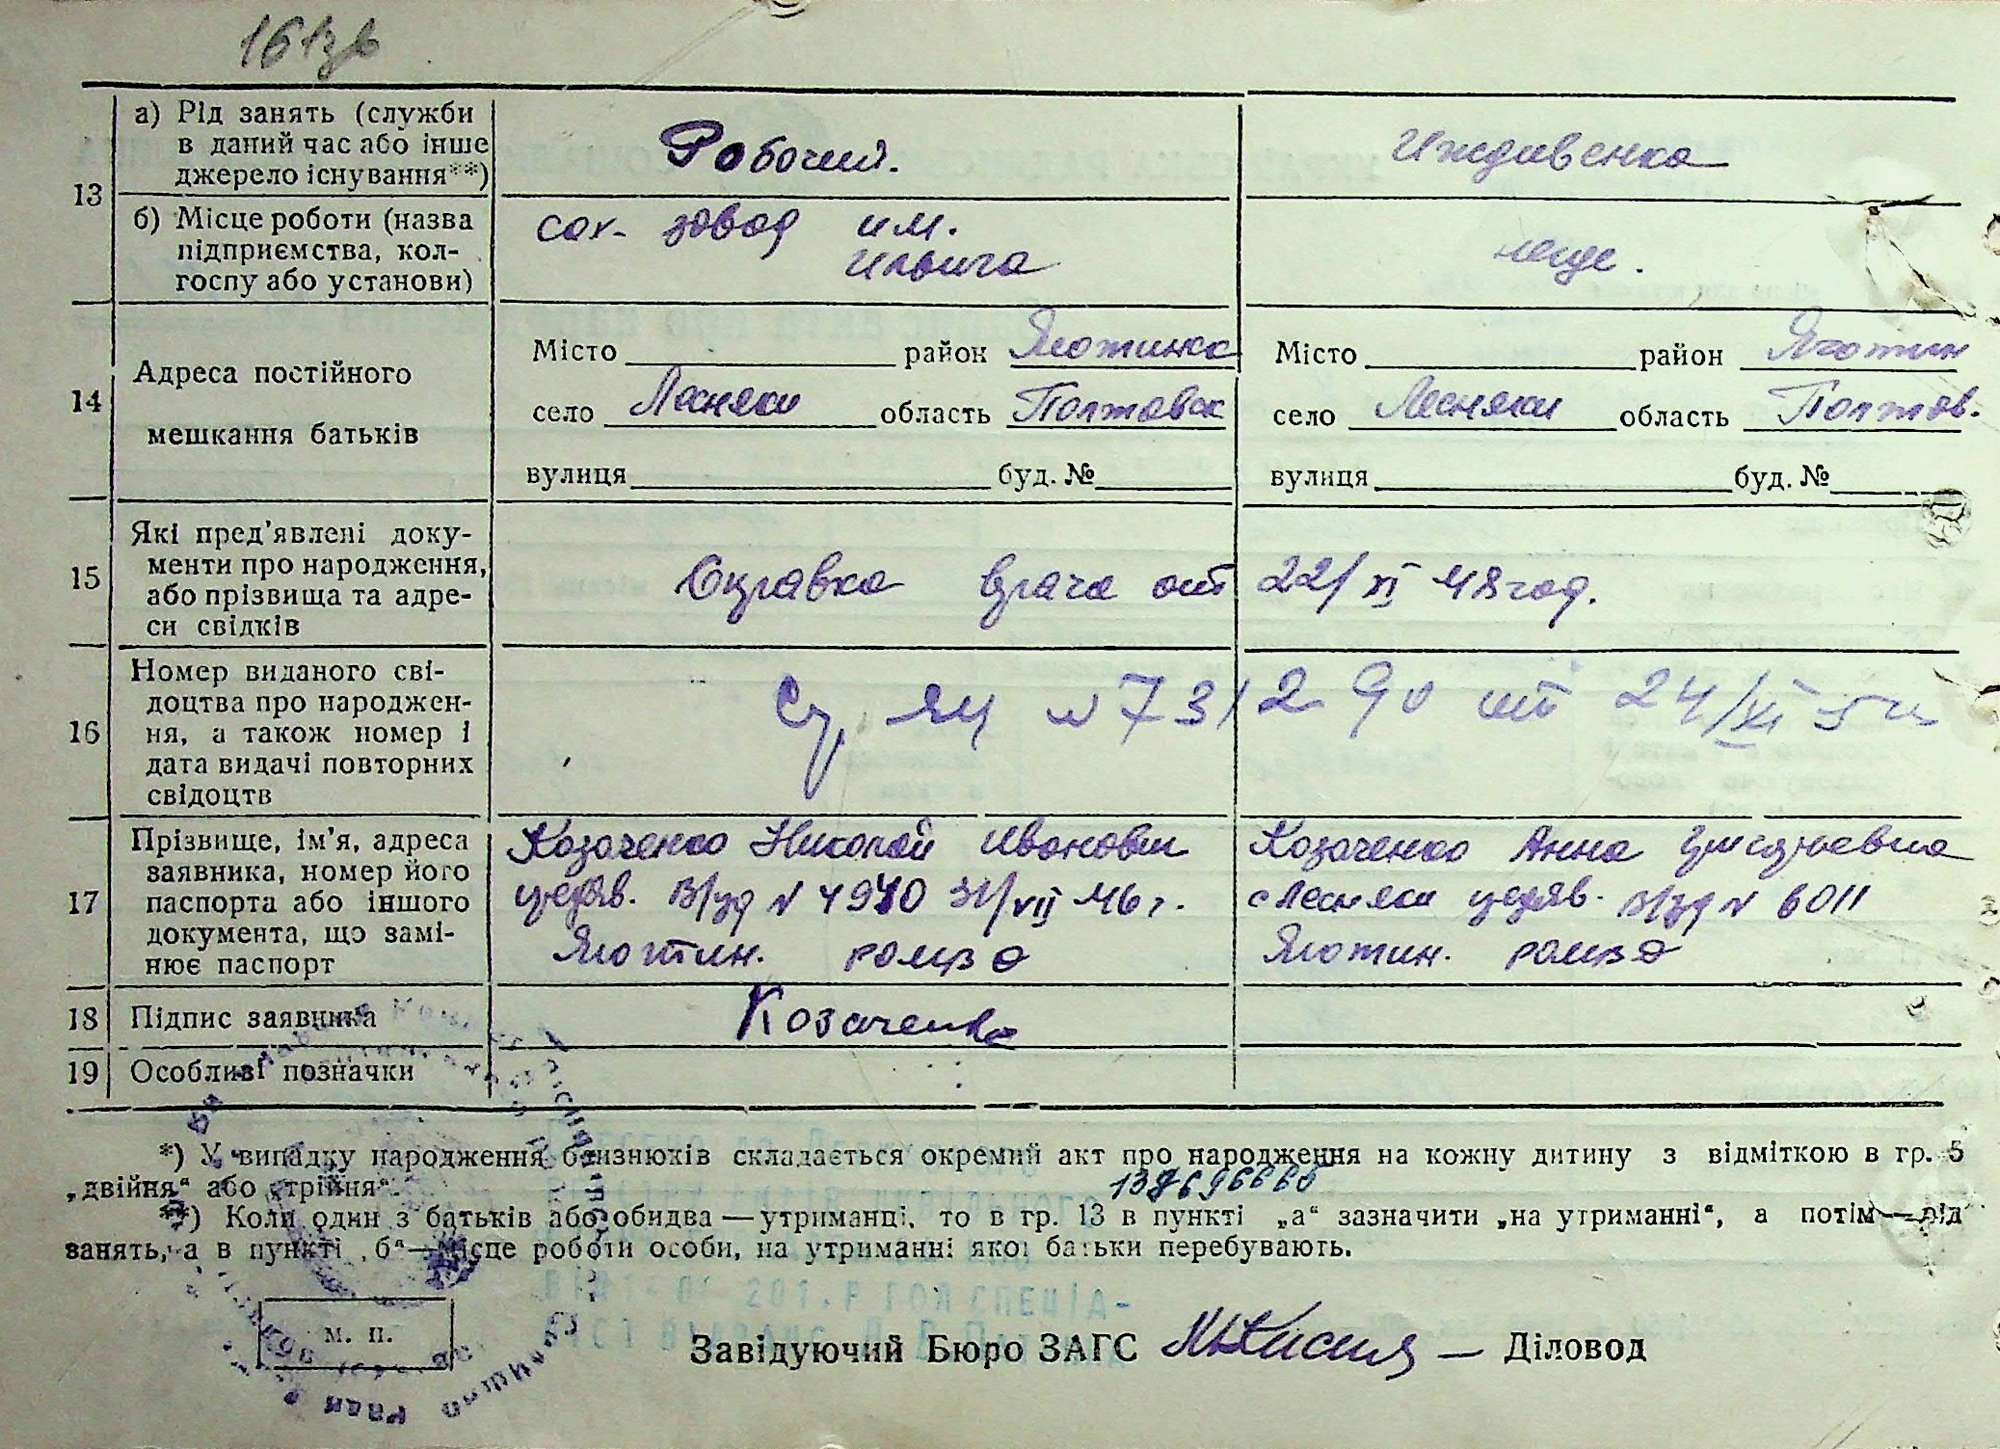 161зв
а) Рід занять (служби
в даний час або інше
джерело існування**)
Робочий.
Иждивенка
13
б) Місце роботи (назва
підприємства, кол-
госпу або установи)
сах. завод им.
Ильича
14
Адреса постійного
мешкання батьків
Місто район Яготинск
село Лесняки область Полтавск
вулиця буд. №
Місто район Яготин
село Лесняки область Полтав.
вулиця буд. №
15
Які пред'явлені доку-
менти про народження,
або прізвища та адре-
си свідків
Справка врача от 22/XI 48 год.
16
Номер виданого сві-
доцтва про народжен-
ня, а також номер і
дата видачі повторних
свідоцтв
ЯЦ № 731290 от 24/XI
17
Прізвище, ім'я, адреса
заявника, номер його
паспорта або іншого
документа, що замі-
нює паспорт
Козаченко Николай Иванович
В/уд № 4970 31/VII 46 г.
Яготин.
Козаченко Анна
с Лесняки В/уд № 6011
Яготин.
18
Підпис заявника
Козаченко
19
Особливі позначки
*) У випадку народження близнюків складається окремий акт про народження на кожну дитину з відміткою в гр. 5
„двійня“ або „трійня“.
**) Коли один з батьків або обидва — утриманці, то в гр. 13 в пункті „а“ зазначити „на утриманні“, а потім — рід
занять, а в пункті „б“ — місце роботи особи, на утриманні якої батьки перебувають.
м. п.
Завідуючий Бюро ЗАГС — Діловод